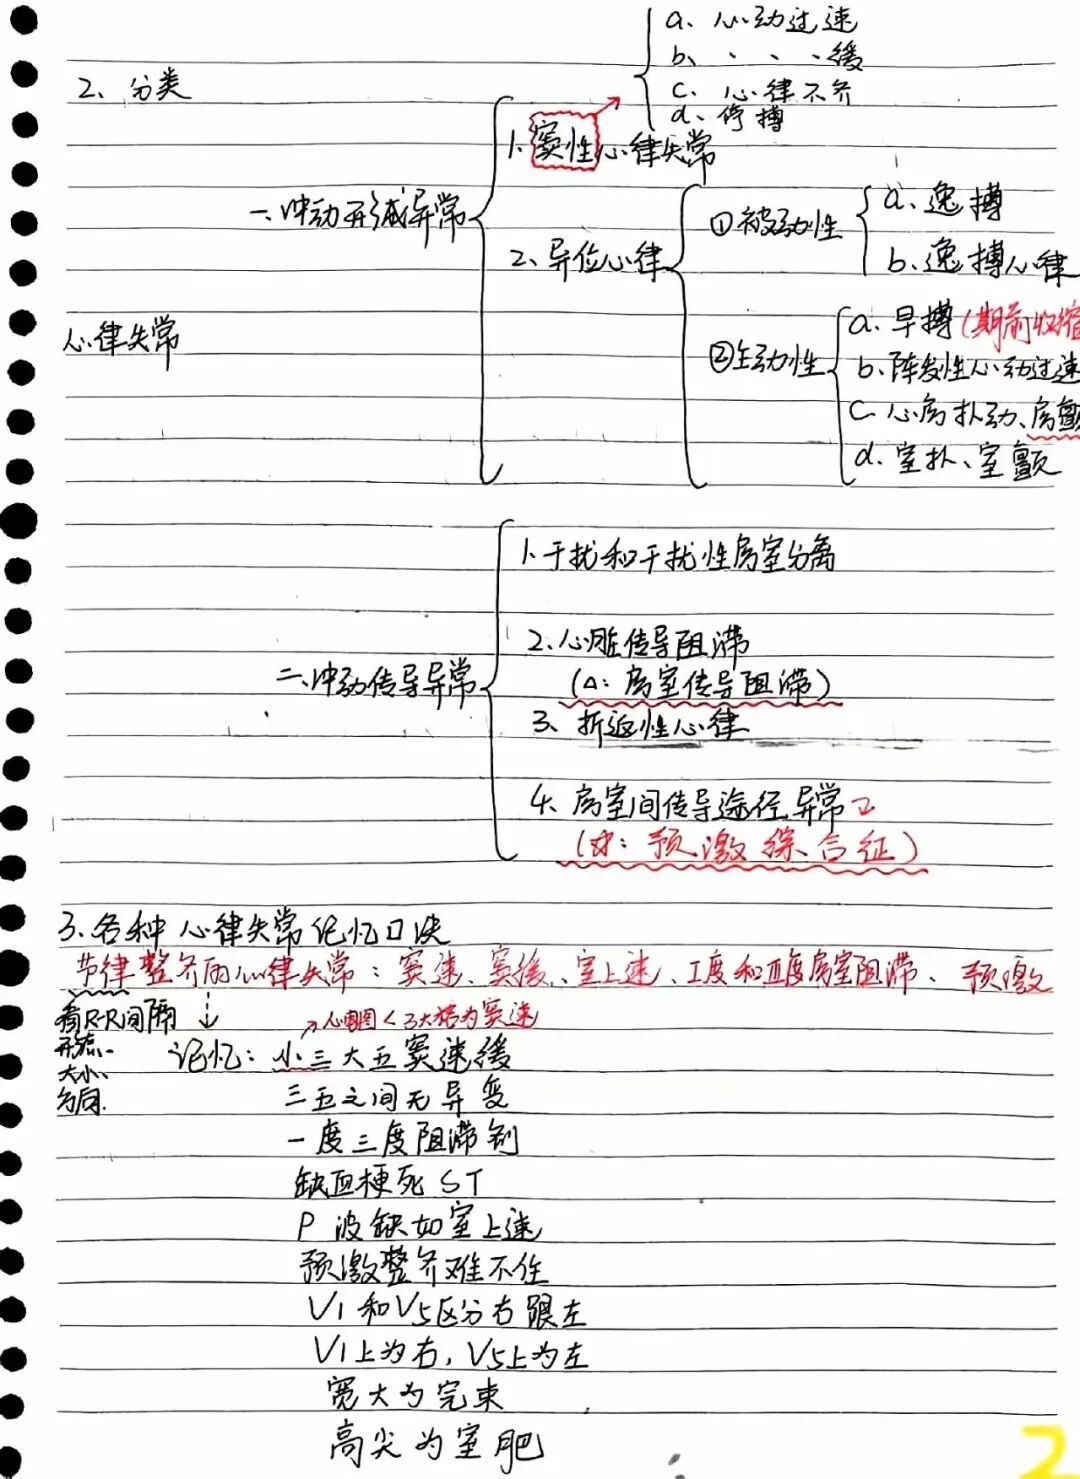 a、心动过速
b、、、、缓
2、分类
c、心律不齐
d、停搏
1、窦性心律失常
一、冲动形成异常
①被动性
a、逸搏
2、异位心律
b、逸搏心律
心律失常
②主动性
a、早搏(期前收缩
b、阵发性心动过速
c、心房扑动、房颤
d、室扑、室颤
1、干扰和干扰性房室分离
2、心脏传导阻滞
二、冲动传导异常
(△:房室传导阻滞)
3、折返性心律
4、房室间传导途径异常
(☆:预激综合征)
3、各种心律失常记忆口诀
节律整齐的心律失常:窦速、窦缓、室上速、I度和III度房室阻滞、预激
看R-R间隔
→心电图<3大格为窦速
形态、
记忆:小三大五窦速缓
大小、
三五之间无异变
一度三度阻滞到
缺血梗死ST
P波缺如室上速
预激整齐难不住
V1和V5区分右跟左
V1上为右,V5上为左
宽大为完束
高尖为室肥
2